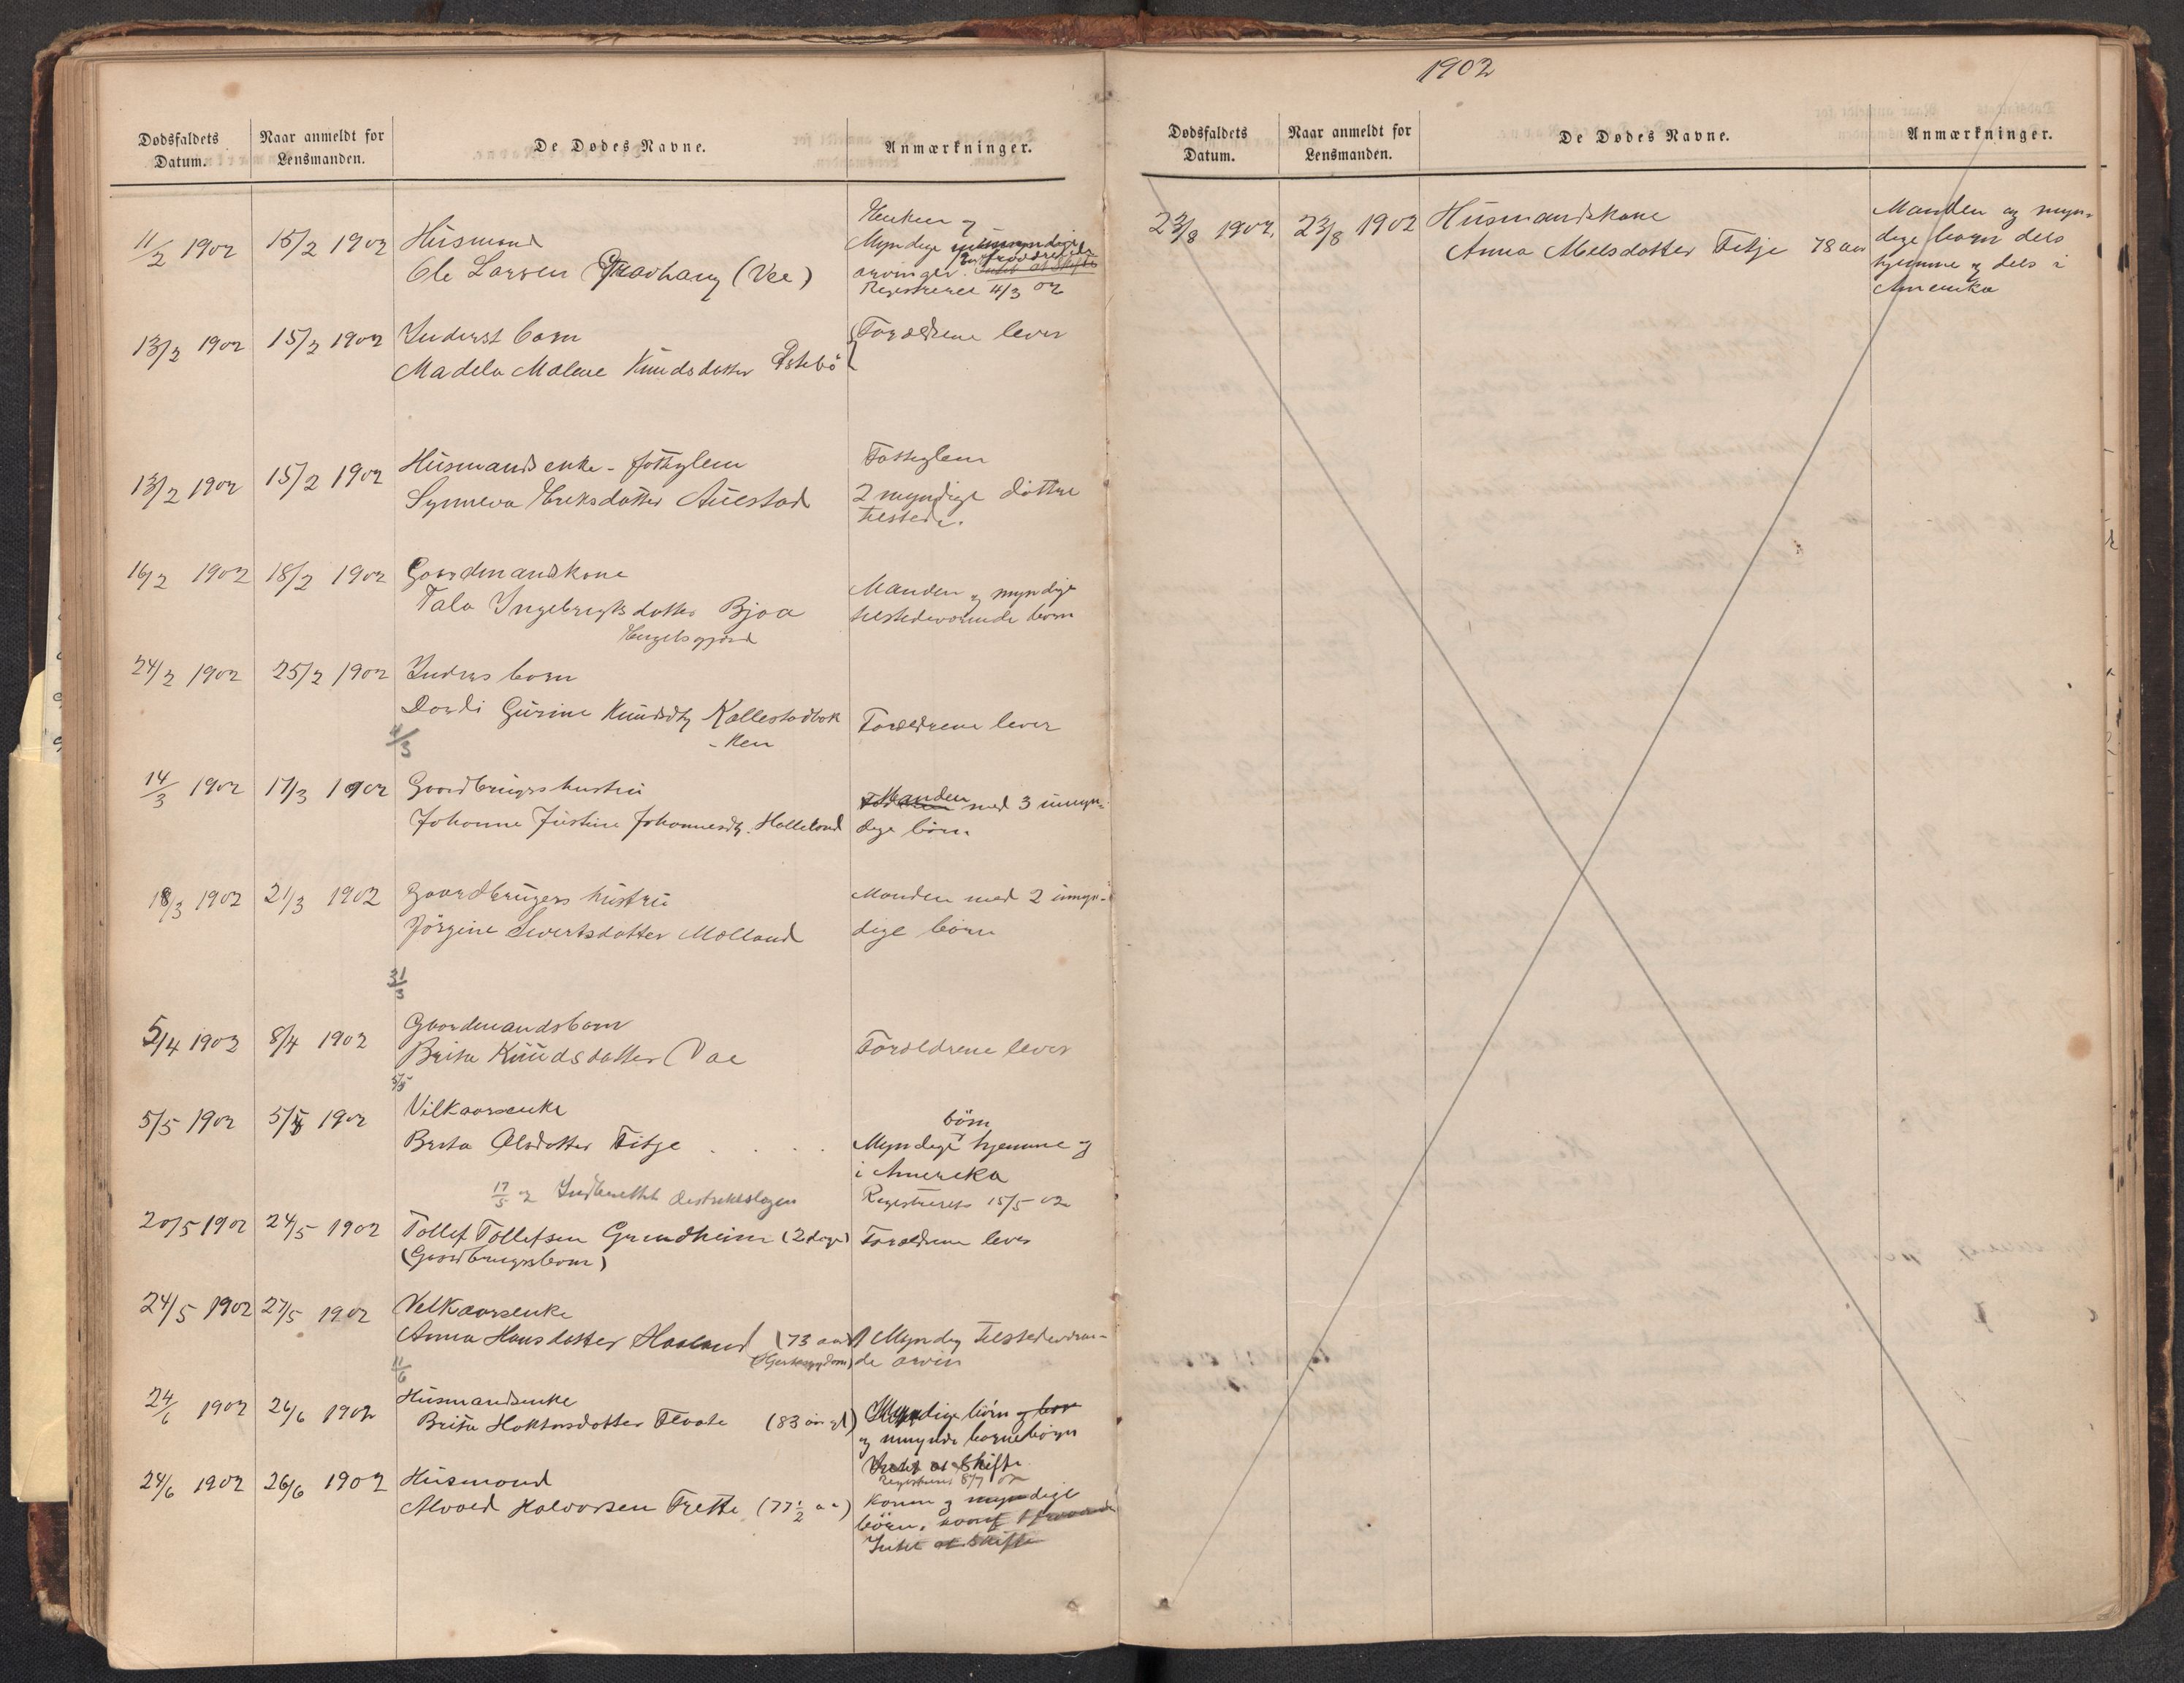 Dødsfaldets Datum.
Naar anmeldt for Lensmanden.
De Dødes Navne.
Anmærkninger.
11/2 1902 15/2 1902 Husmand
Ole Larsen Gravhaug (Vee)
Enken og
Myndige
arvinger. Intet at skifte
Registreret 4/3 02
13/2 1902 15/2 1902 Inderst barn
Madela Malene Knudsdatter Østebö
Forældrene lever
13/2 1902 15/2 1902 Husmands enke - fattiglem
Synneva Eriksdatter Auestad
Fattiglem
2 myndige döttre
tilstede.
16/2 1902 18/2 1902 Gaardmandskone
Tala Ingebrigtsdatter Bjoa
Engelsgjerd
Manden og myndige
tilstedeværende børn
24/2 1902 25/2 1902 Inders barn
Dordi Gurine Knudsdtr Kallestadbak
-ken
Forældrene lever
4/3
14/3 1902 17/3 1902 Gaardbrugershustru
Johanne Justine Johannesdtr. Halleland
Manden med 3 umyn-
dige börn
18/3 1902 21/3 1902 Gaardbrugers hustru
Jörgine Sivertsdatter Mölland
Manden med 2 umyn-
dige börn
31/3
5/4 1902 8/4 1902 Gaardmandsbarn
Brita Knudsdatter Vae
Forældrene lever
5/5
5/5 1902 5/5 1902 Vilkaarsenke
Brita Olsdatter Fitje . . . .
börn
Myndige hjemme og
i Amerika
Registreret 15/5 02
17/5 02 Indberettet distriktslægen
20/5 1902 24/5 1902 Tollef Tollefsen Grindheim (2 dage)
(Gaardbrugersbarn)
Forældrene lever
24/5 1902 27/5 1902 Vilkaarsenke
Anna Hansdatter Haaland (73 aar)
(Hjertesygdom)
Myndig tilstedeværen-
de arvin
11/6
24/6 1902 26/6 1902 Husmandsenke
Brita Haktorsdatter Flaate (83 aar gl)
Myndige börn og
og umyndi barnebörn
Intet at skifte
Registreret 8/7 02
24/6 1902 26/6 1902 Husmand
Alvald Halvorsen Frette (77 1/2 aar)
Konen og myndige
börn,
Intet at skifte
1902
Dødsfaldets Datum.
Naar anmeldt for Lensmanden.
De Dødes Navne.
Anmærkninger.
22/8 1902. 23/8 1902 Husmandskone
Anna Melsdatter Fitje 78 aar
Manden og myn-
dige børn dels
hjemme og dels i
Amerika